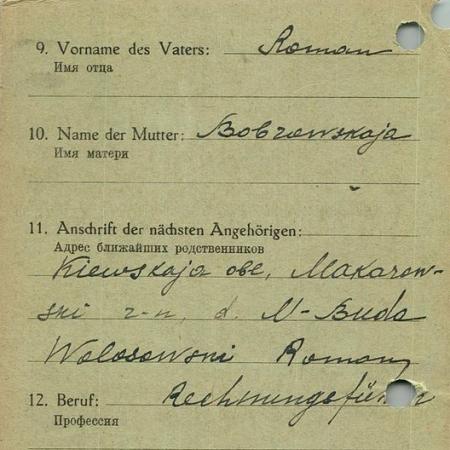 9. Vorname des Vaters: Roman
Имя отца
10. Name der Mutter: Bobrowskaja
Имя матери
11. Anschrift der nächsten Angehörigen:
Адрес ближайших родственников
Kiewskaja obl, Makarow-
ski r-n, d. M-Buda
Wolosowski Roman
12. Beruf: Rechnungsführer
Профессия